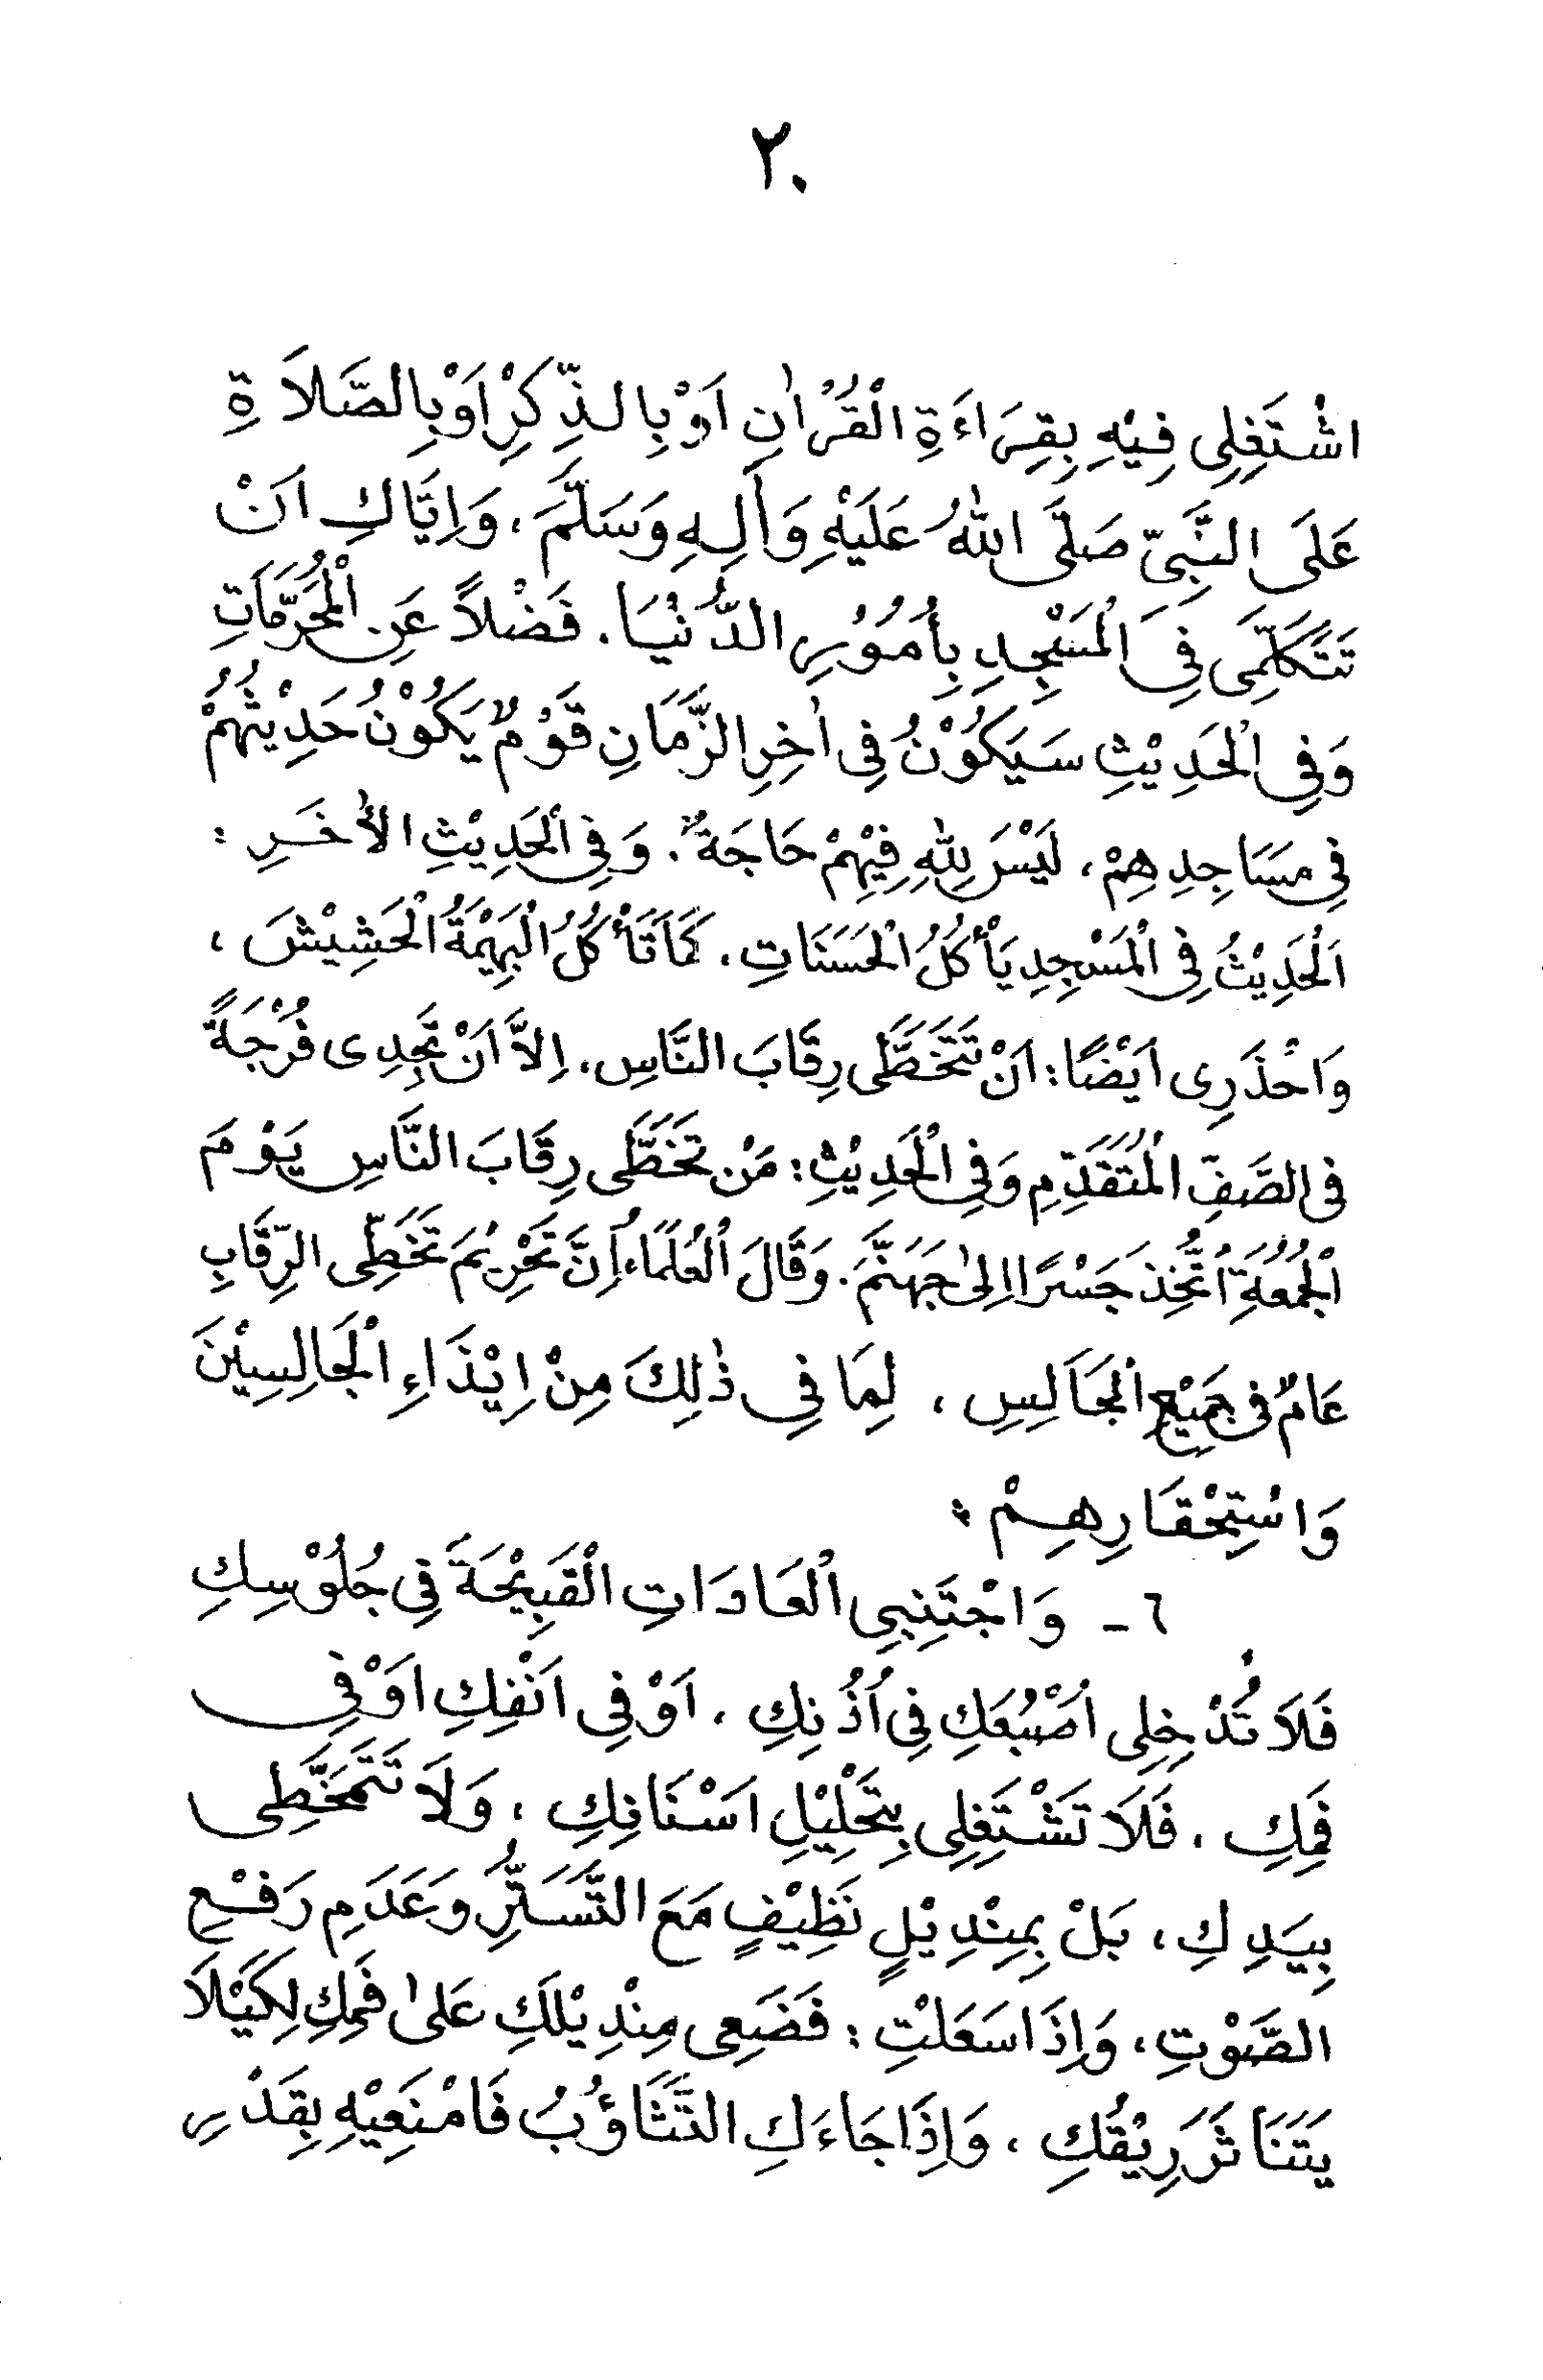 ٢٠
اشْتَغِلِى فِيْهِ بِقِرَاءَةِ الْقُرْاٰنِ اَوْ بِالذِّكْرِ اَوْ بِالصَّلاَةِ
عَلَى النَّبِىِّ صَلَّى اللّٰهُ عَلَيْهِ وَاٰلِهِ وَسَلَّمَ، وَاِيَّاكِ اَنْ
تَتَكَلَّمِى فِى الْمَسْجِدِ بِأُمُوْرِ الدُّنْيَا. فَضْلاً عَنِ الْمُحَرَّمَاتِ
وَفِى الْحَدِيْثِ سَيَكُوْنُ فِى اٰخِرِ الزَّمَانِ قَوْمٌ يَكُوْنُ حَدِيْثُهُمْ
فِى مَسَاجِدِهِمْ، لَيْسَ لِلّٰهِ فِيْهِمْ حَاجَةٌ. وَفِى الْحَدِيْثِ الْأٰخَرِ :
اَلْحَدِيْثُ فِى الْمَسْجِدِ يَأْكُلُ الْحَسَنَاتِ، كَمَا تَأْكُلُ الْبَهِيْمَةُ الْحَشِيْشَ،
وَاحْذَرِى اَيْضًا: اَنْ تَتَخَطَّى رِقَابَ النَّاسِ، اِلاَّ اَنْ تَجِدِى فُرْجَةً
فِى الصَّفِّ الْمُتَقَدِّمِ وَفِى الْحَدِيْثِ: مَنْ تَخَطَّى رِقَابَ النَّاسِ يَوْمَ
الْجُمُعَةِ اُتُّخِذَ جَسْرًا اِلىٰ جَهَنَّمَ. وَقَالَ الْعُلَمَاءُ اِنَّ تَحْرِيْمَ تَخَطِّى الرِّقَابِ
عَامٌ فِى جَمِيْعِ الْمَجَالِسِ، لِمَا فِى ذٰلِكَ مِنْ اِيْذَاءِ الْجَالِسِيْنَ
وَاسْتِحْقَارِهِمْ :
٦ - وَاجْتَنِبِى الْعَادَاتِ الْقَبِيْحَةَ فِى جُلُوْسِكِ
فَلاَ تُدْخِلِى اُصْبُعَكِ فِى اُذُنِكِ، اَوْ فِى اَنْفِكِ اَوْ فِى
فَمِكِ، فَلاَ تَشْتَغِلِى بِتَحْلِيْلِ اَسْنَانِكِ، وَلاَ تَتَمَخَّطِى
بِيَدِكِ، بَلْ بِمِنْدِيْلٍ نَظِيْفٍ مَعَ التَّسَتُّرِ وَعَدَمِ رَفْعِ
الصَّوْتِ، وَاِذَا سَعَلْتِ : فَضَعِى مِنْدِيْلَكِ عَلىٰ فَمِكِ لِكَيْلاَ
يَتَنَاثَرَ رِيْقُكِ، وَاِذَا جَاءَكِ التَّثَاؤُبُ فَامْنَعِيْهِ بِقَدْرِ